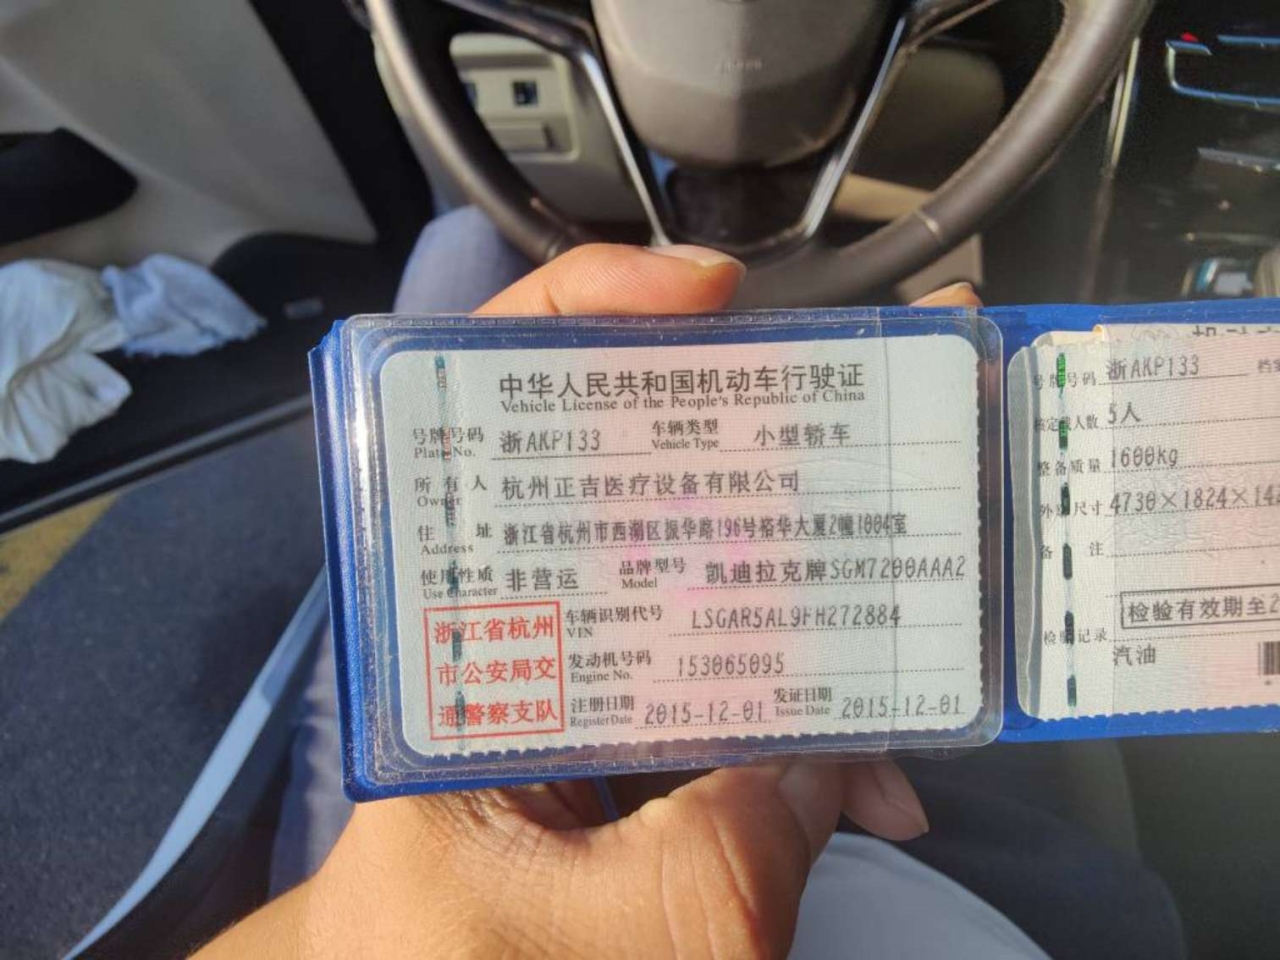 中华人民共和国机动车行驶证
Vehicle License of the People's Republic of China
号牌号码 浙AKP133 车辆类型 小型轿车
Plate No. Vehicle Type
所有人 杭州正吉医疗设备有限公司
Owner
住址 浙江省杭州市西湖区振华路196号裕华大厦2幢1004室
Address
使用性质 非营运 品牌型号 凯迪拉克牌SGM7200AAA2
Use Character Model
浙江省杭州
市公安局交
通警察支队
车辆识别代号 LSGAR5AL9FH272884
VIN
发动机号码 153065095
Engine No.
注册日期 2015-12-01 发证日期 2015-12-01
Register Date Issue Date
号牌号码 浙AKP133
核定载人数 5人
整备质量 1600kg
外廓尺寸 4730×1824×14
备注
检验有效期至2
检验记录
汽油